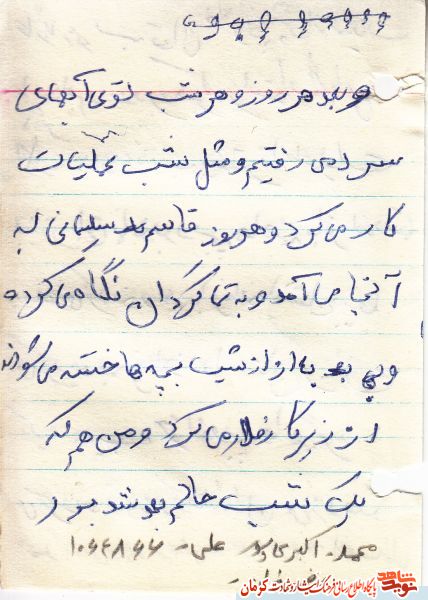 و بعد هر روز و هر شب توی آبهای
سرد می رفتیم و مثل شب عملیات
کار می کرد و هر روز قاسم سلیمانی به
آنجا می آمد و به تما گردان نگاه می کرد
و بعد از شب بچه ها خسته می شدند
از زیر کار فرار می کرد و من هم که
یک شب حالم بد شد بود
محمد اکبری پور علی
پایگاه اطلاع رسانی فرهنگ ایثار و شهادت کرمان
نوید شاهد